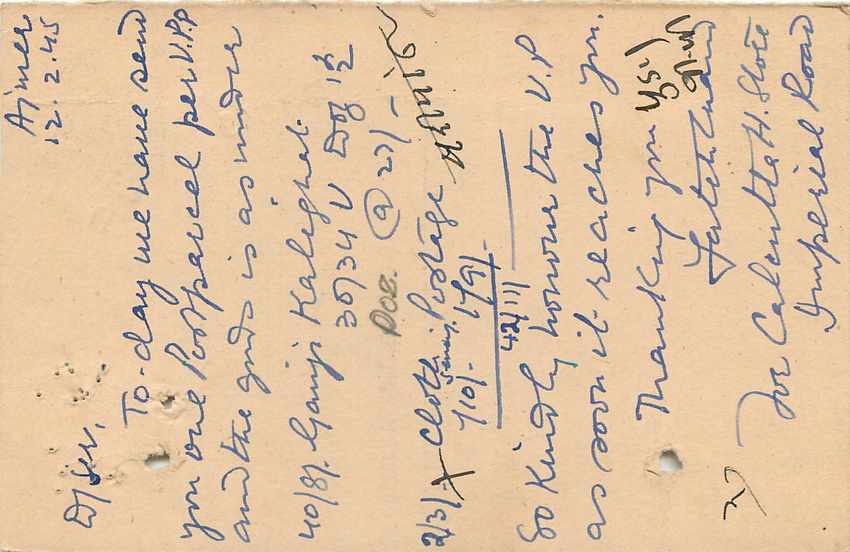 Ajmer
12.2.45
D/Sir,
To-day we have send
you one Postparcel per V.P.P
and the goods is as under
40/8/. Ganji Kalighat.
30/34 U Doz 1½
Doz. @ 27/-
2/3/- Cloth, Postage
/10/- 1/9/-
42/11/
So Kindly honour the V.P
as soon it reaches you.
Thanking you
Yrs/
Fatehchand
For Calcutta H. Store
Imperial Road